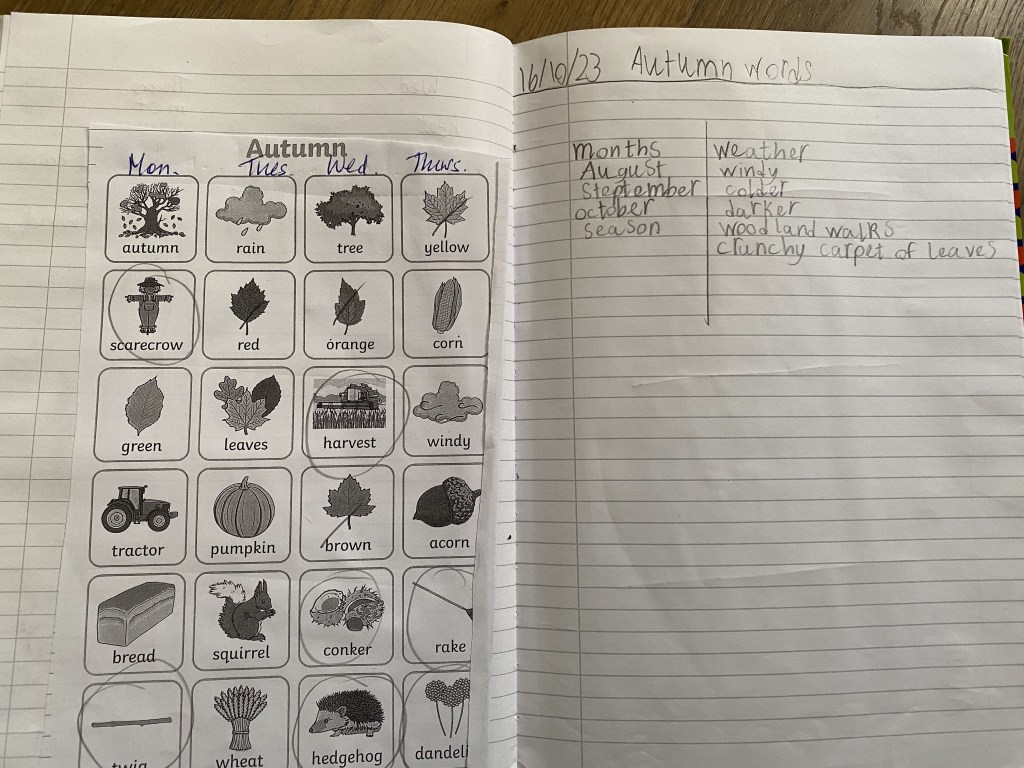 Autumn
Mon. Tues. Wed. Thurs.
autumn rain tree yellow
scarecrow red orange corn
green leaves harvest windy
tractor pumpkin brown acorn
bread squirrel conker rake
twig wheat hedgehog dandeli
16/10/23 Autumn words
months
August
Steptember
october
season
weather
windy
colder
darker
woodland walks
crunchy carpet of leaves